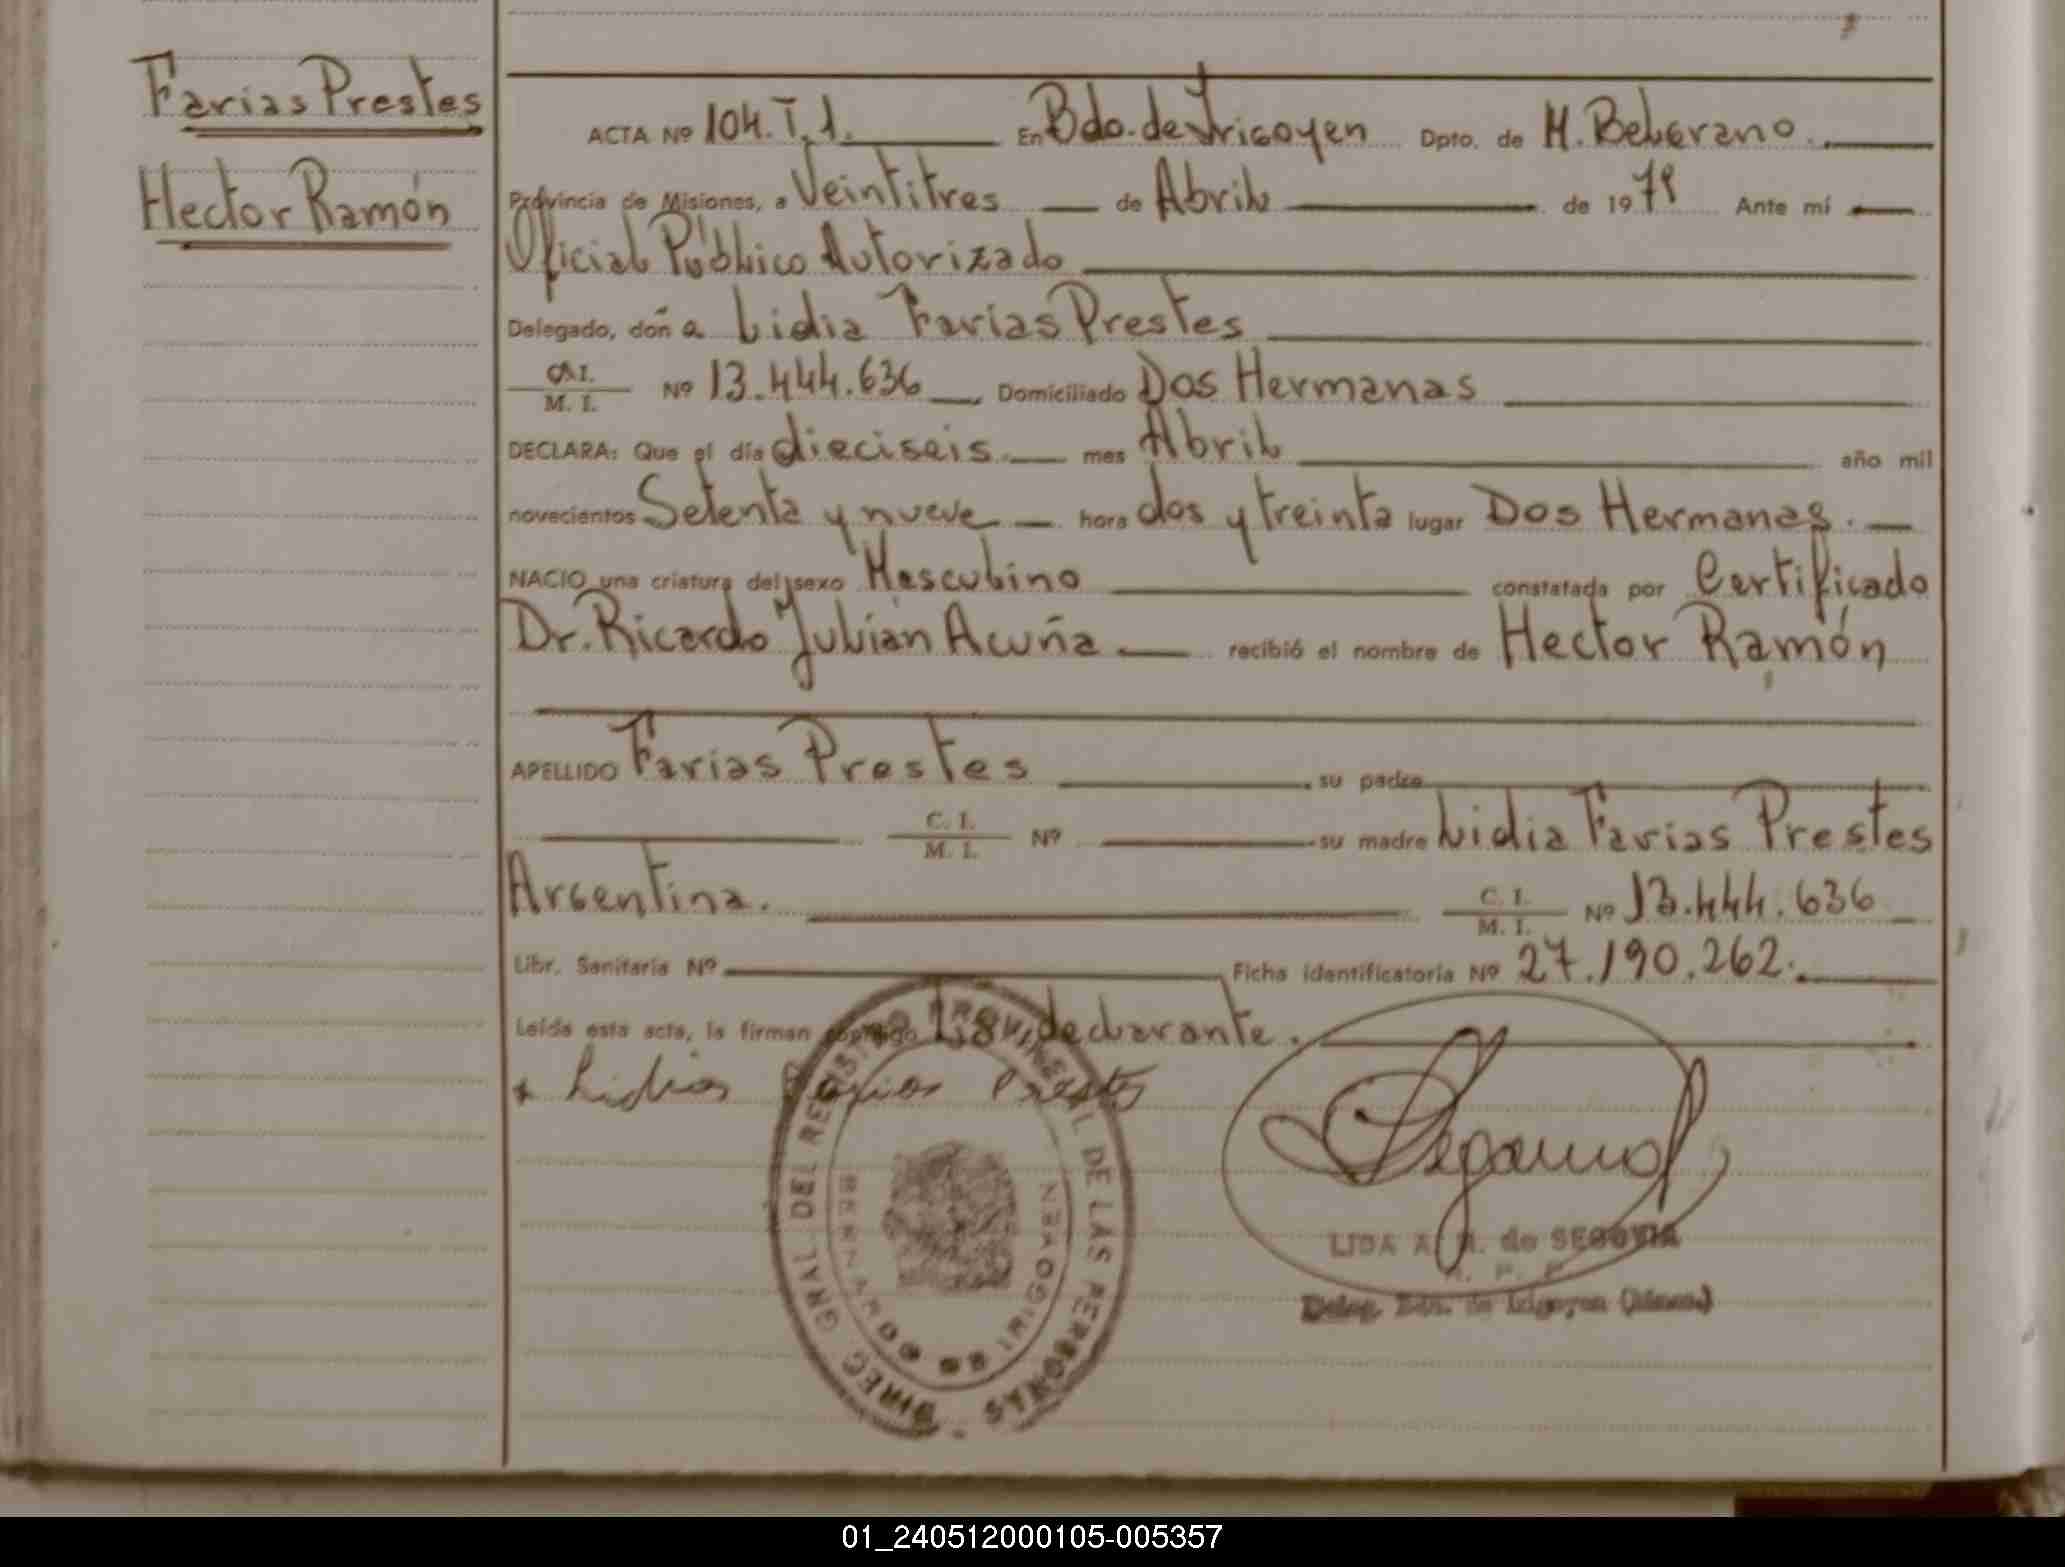 Farias Prestes
Hector Ramón
ACTA Nº 104. T. 1. En Bdo. de Irigoyen Dpto. de M. Belgrano.
Provincia de Misiones, a Veintitres de Abril de 1979 Ante mí
Oficial Público Autorizado
Delegado, doña Lidia Farias Prestes
M. I. Nº 13.444.636 Domiciliado Dos Hermanas
DECLARA: Que el día dieciseis mes Abril año mil
novecientos Setenta y nueve hora dos y treinta lugar Dos Hermanas.
NACIO una criatura del sexo Masculino constatada por Certificado
Dr. Ricardo Julián Acuña recibió el nombre de Hector Ramón
APELLIDO Farias Prestes su padre
C. I.
M. I. Nº su madre Lidia Farias Prestes
Argentina. C. I.
M. I. Nº 13.444.636
Libr. Sanitaria Nº Ficha identificatoria Nº 27.190.262.
Leída esta acta, la firman conmigo La declarante.
Lidia Farias Prestes
DIREC GRAL DEL REGISTRO PROVINCIAL DE LAS PERSONAS
BERNARDO DE IRIGOYEN
LIDA A. de SEGOVIA
Deleg. Bdo. de Irigoyen (Mnes.)
01_240512000105-005357